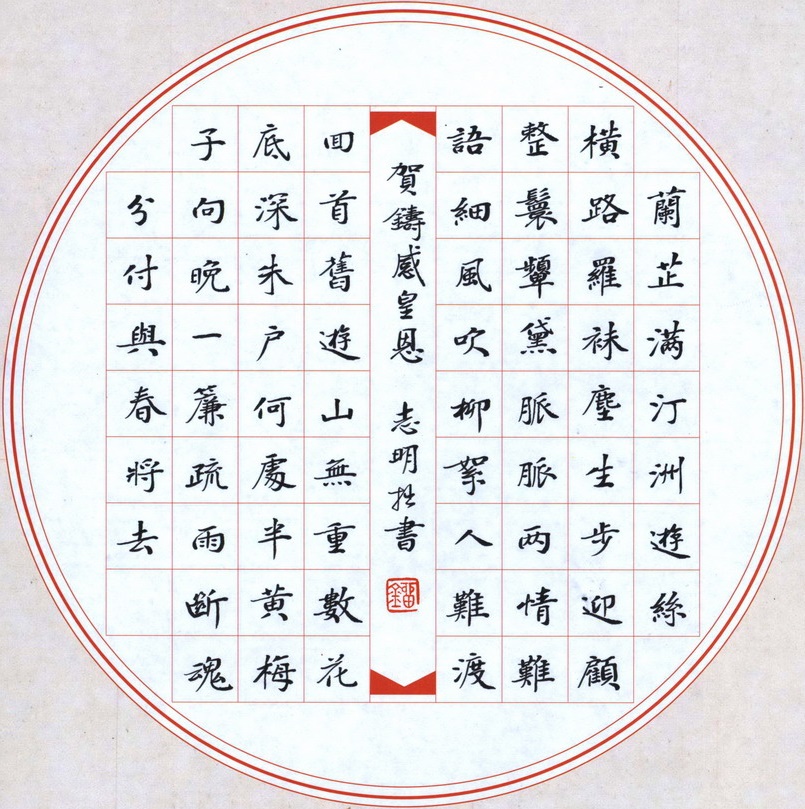 蘭芷满汀洲遊絲
橫路羅袜塵生步迎顧
整鬟顰黛脈脈两情難
語細風吹柳絮人難渡
賀鑄感皇恩 志明拙書
回首舊遊山無重數花
底深朱户何處半黄梅
子向晚一簾疏雨断魂
分付與春將去